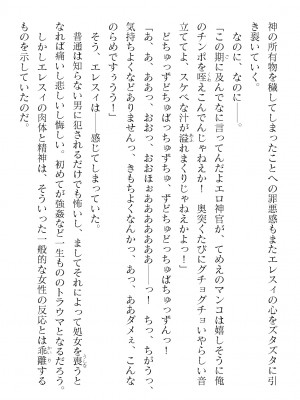 神の所有物を穢してしまったことへの罪悪感もまたエレスィの心をズタズタに引
き裂いていく。
なのに、なのに――。
「この期に及んでなに言ってんだよエロ神官が、てめえのマンコは嬉しそうに俺
のチンポを咥えこんでんじゃねえか！　奥突くたびにグチョグチョいやらしい音
立ててよ、スケベな汁が溢れまくりじゃねえかよっ！」
どちゅっずどちゅっぱちゅずちゅ、ずどちゅどっちゅばちゅっずんっ！
「あ、あ、ああっ、おおっ、おおほぉああああああ――っ！　ちっ、ちがうっ、
気持ちよくなどありませんっ、きもちよくなんかっ、あっ、ああダメぇ、こんな
のらめですぅうう！」
そう、エレスィは――感じてしまっていた。
普通は知らない男に犯されるだけでも怖いし、ましてそれによって処女を喪うと
なれば痛いし悲しいし悔しい。初めてが強姦など一生もののトラウマとなるだろう。
しかしエレスィの肉体と精神は、そういった一般的な女性の反応とは乖離する
ものを示していたのだ。